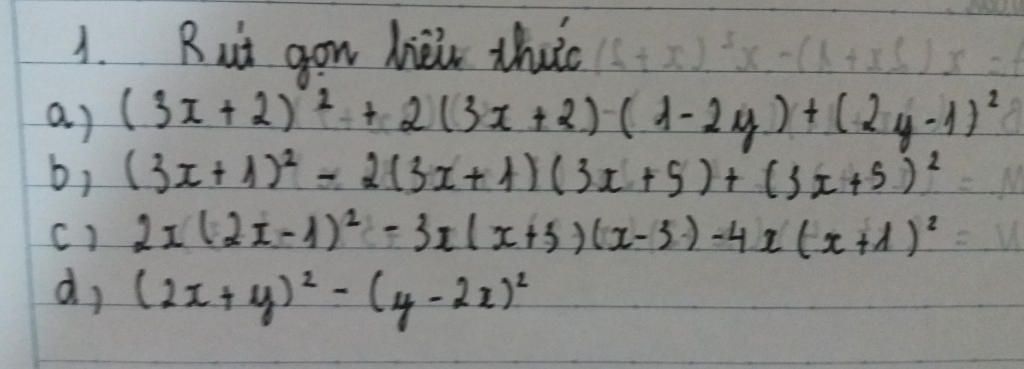 1. Rút gọn biểu thức
a) (3x+2)² + 2(3x+2)-(1-2y)+(2y-1)²
b) (3x+1)² - 2(3x+1)(3x+5)+(3x+5)²
c) 2x(2x-1)² - 3x(x+3)(x-3)-4x(x+1)²
d) (2x+y)² - (y-2x)²